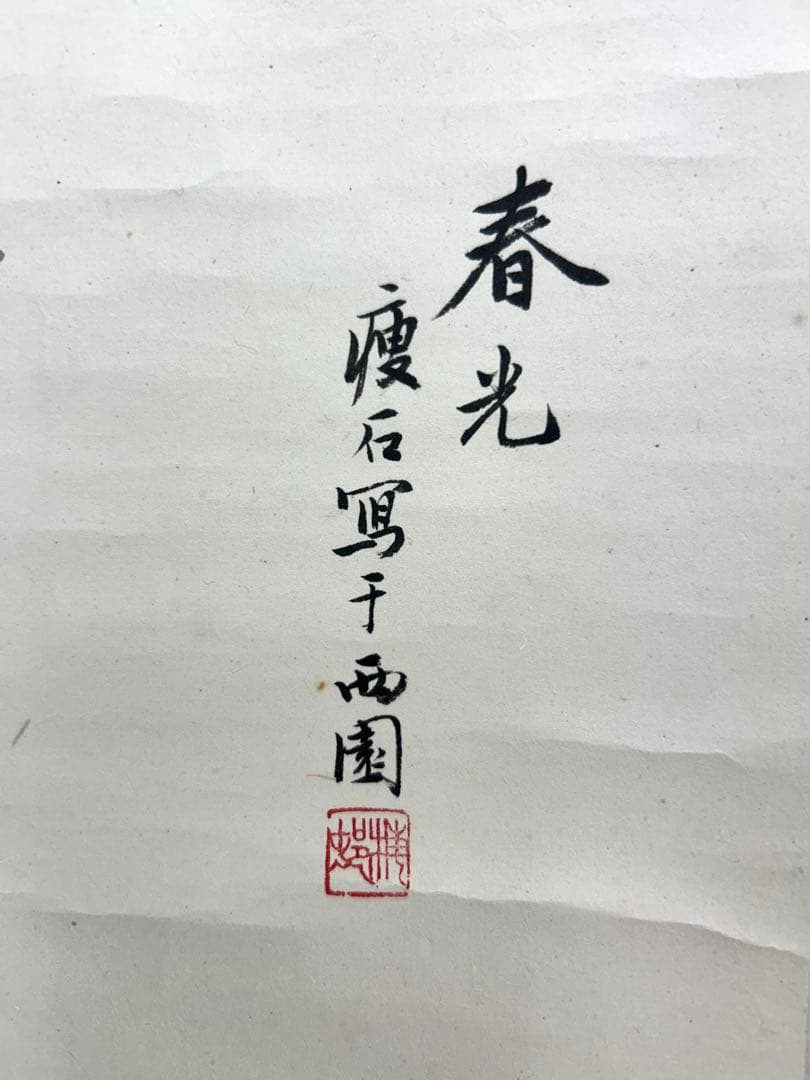 春光
瘦石寫于西園